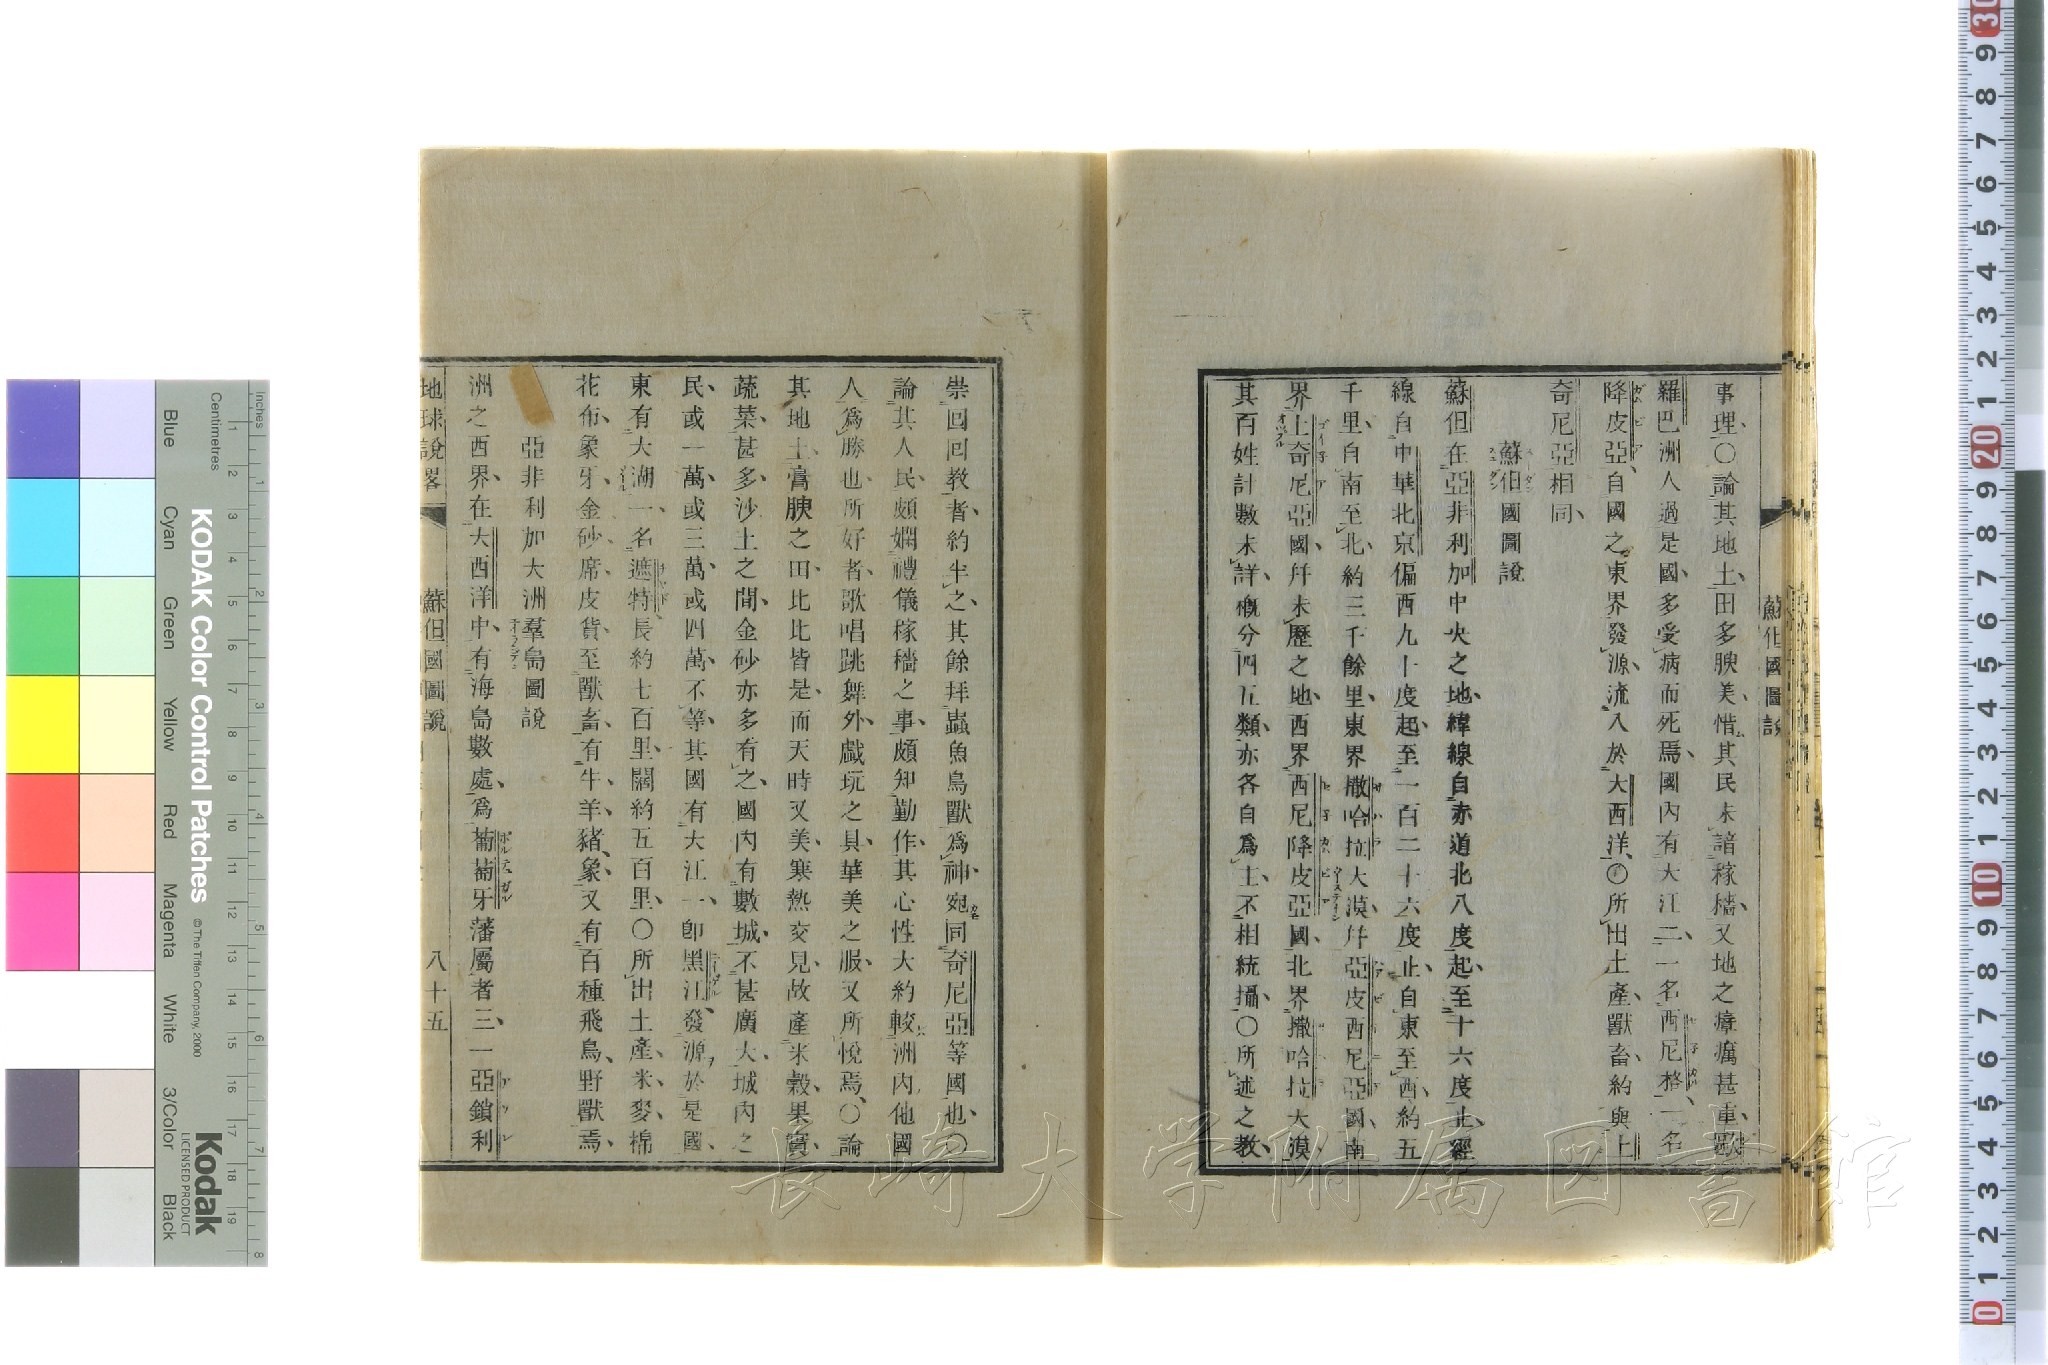 蘇伹國圖說
事理、○論其地土、田多腴美、惜其民未諳稼穡、又地之瘴癘甚重、歐
羅巴洲人過是國、多受病而死焉、國內有大江二、一名西尼格、一名
降皮亞、自國之東界發源、流入於大西洋、○所出土產、獸畜約與上
奇尼亞相同、
蘇伹國圖說
蘇伹在亞非利加中央之地、緯線自赤道北八度起、至十六度止、經
線自中華北京偏西九十度起、至一百二十六度止、自東至西、約五
千里、自南至北、約三千餘里、東界撒哈拉大漠、幷亞皮西尼亞國、南
界上奇尼亞國、幷未歷之地、西界西尼降皮亞國、北界撒哈拉大漠、
其百姓計數未詳、槪分四五類、亦各自爲主、不相統攝、○所述之教、
崇回回教者、約半之、其餘拜蟲魚鳥獸爲神、宛同奇尼亞等國也、○
論其人民、頗嫻禮儀、稼穡之事、頗知勤作、其心性大約較洲內他國
人爲勝也、所好者、歌唱跳舞外、戲玩之具、華美之服、又所悅焉、○論
其地土、膏腴之田、比比皆是、而天時又美、寒熱交見、故產米穀、果實、
蔬菜、甚多、沙土之間、金砂亦多有之、國內有數城、不甚廣大、城內之
民、或一萬、或三萬、或四萬、不等、其國有大江一、卽黑江、發源於是國、
東有大湖、一名遮特、長約七百里、闊約五百里、○所出土產、米、麥、棉
花、布、象牙、金砂、席、皮貨、至獸畜、有牛、羊、豬、象、又有百種飛鳥、野獸焉、
亞非利加大洲羣島圖說
洲之西界、在大西洋中、有海島數處、爲葡萄牙藩屬者三、一亞鎖利
地球說畧
蘇伹國圖說
八十五
長崎大学附属図書館
KODAK Color Control Patches
© The Tiffen Company, 2000
Kodak
LICENSED PRODUCT
Inches
Centimetres
Blue
Cyan
Green
Yellow
Red
Magenta
White
3/Color
Black